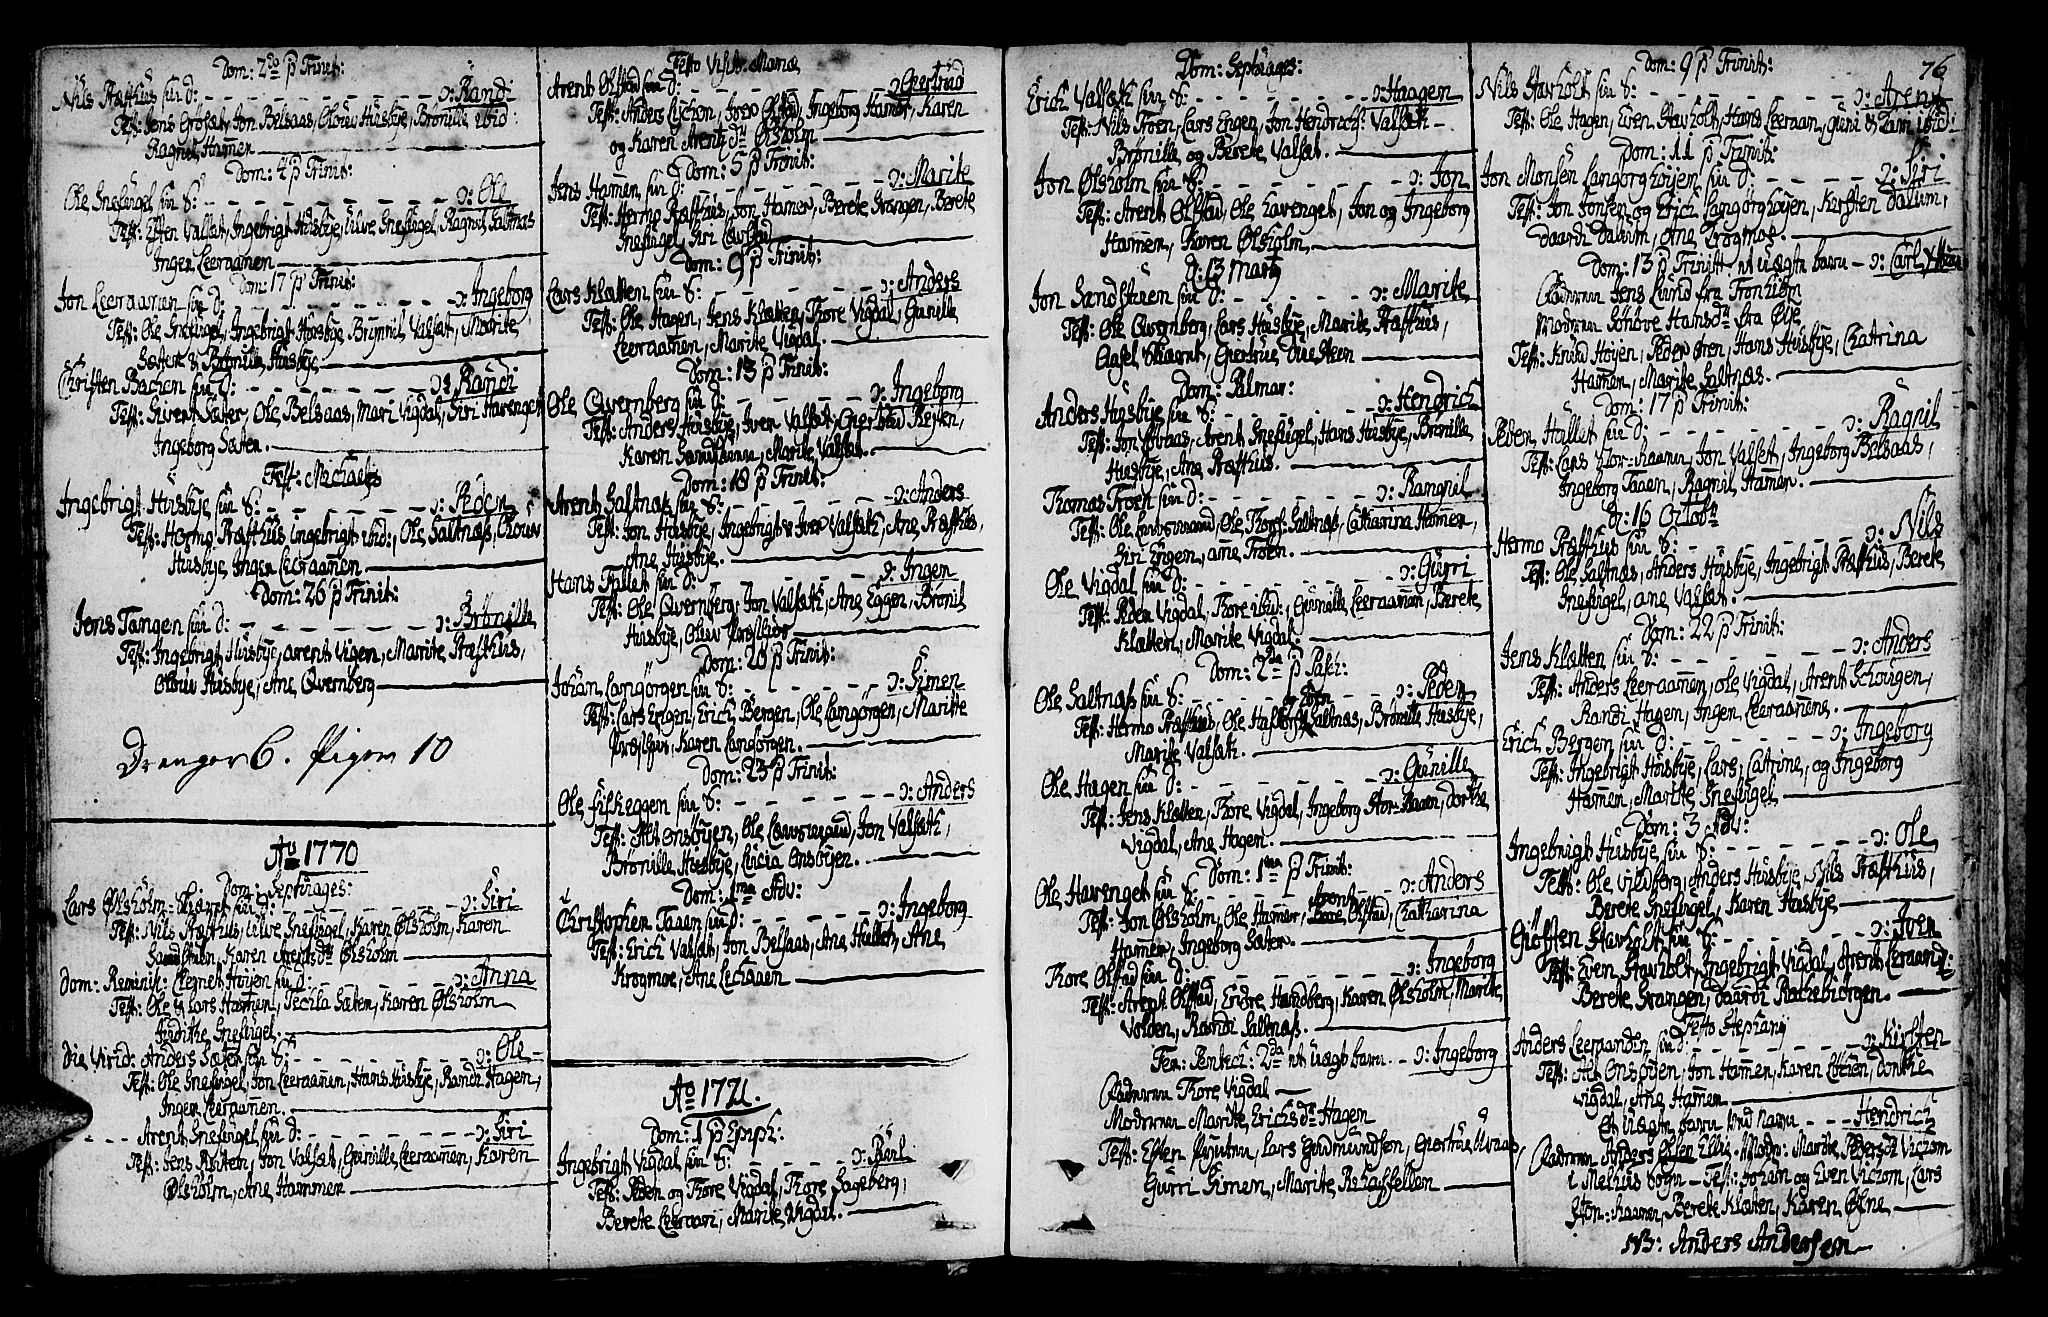 Dom: 2do p Trinit:
NilsRæfthus sin d: - - - ɔ: Randi
Test: Jens Grofat, Jon Belsaas, Olouv Husbye, Brønille ibid:
Ragnil Hamen
Dom: 4 p Trinit:
Ole Snefugel sin S: - - - ɔ: Ole
Test: Esten Valsat, Ingebrigt Husbye, Ulve Snefugel, Ragnil Saltnas
Inger Leeraanen
Dom: 17 p Trinit:
Jon Leeraanen sin d: - - - ɔ: Ingeborg
Test: Ole Snefugel, Ingebrigt Husbye, Brynnil Valsat, Marite
Sæter & Brønille Husbye
Christen Bachen sin d: - - - ɔ: Randi
Test: Sivert Sæter, Ole Belsaas, Mari Vigdal, Siri Havenget
Ingeborg Sæter.
Fest: Michaelis
Ingebrigt Husbye sin S: - - - ɔ: Peder
Test: Hermo Ræfthus Ingebrigt ibid:, Ole Saltnass, Olouv
Husbye, Inger Leeraanen
Dom: 26 p Trinit:
Jens Tangen sin d: - - - ɔ: Brønille
Test: Ingebrigt Husbye, Arent Vigen, Marite Ræfthus,
Olouv Husbye, Ane Qvernberg
Drenger 6. Piger 10
Ao 1770
Dom: Septuages:
Lars Ølsholm-Skiaret sin d: - - - ɔ: Siri
Test: Nils Ræfthus, Ulve Snefugel, Karen Ølsholm, Karen
Sandstuen, Karen Arentsdtr Ølsholm
Dom: Reminisc: Clemet Høyen sin d: - - - ɔ: Anna
Test: Ole & Lars Hammen, Cecilia Sæter, Karen Ølsholm
Fredrikke Snefugel.
Die Virid: Anders Sæter sin S: - - - ɔ: Ole
Test: Ole Snefugel, Jon Leeraanen, Hans Husbye, Randi Hagen,
Inger Leeraanen.
- - - Arent Snefugel sin d: - - - ɔ: Siri
Test: Jens Røsten, Jon Valsat, Gunille Leeraanen, Karen
Ølsholm, Ane Hammer
Festo Visit: Mariæ
Arent Ølstad sin d: - - - ɔ: Giertrud
Test: Anders Ljeham, Iver Ølstad, Ingeborg Hamer, Karen
og Karen Arentzdtr Ølsholm
Dom: 5 p Trinit:
Jens Hamen sin d: - - - ɔ: Marite
Test: Hermo Ræfthus, Jon Hamer, Berete Grangen, Berete
Snefugel, Siri Løvstad
Dom: 9 p Trinit:
Lars Klætten sin S: - - - ɔ: Anders
Test: Ole Hagen, Jens Klætten, Thore Vigdal, Gunille
Leeraanen, Marite Vigdal.
Dom: 13 p Trinit:
Ole Qvernberg sin d: - - - ɔ: Ingeborg
Test: Anders Husbye, Iver Valsat, Giertrud Resten,
Karen Sandstuen, Marite Valsat.
Dom: 18 p Trinit:
Arent Saltnas sin S: - - - ɔ: Anders
Test: Jon Husbye, Ingebrigt & Iver Valsath, Ane Ræfthus,
Ane Husbye.
Hans Hallet sin d: - - - ɔ: Inger
Test: Ole Qvernberg, Jon Valsath, Ane Eggen, Brønil
Husbye, Oluv Præsthus
Dom: 20 p Trinit:
Johan Langørgen sin S: - - - ɔ: Simen
Test: Lars Engen, Erich Bergen, Ole Langørgen, Maritte
Præsthus, Karen Langørgen.
Dom: 23 p Trinit:
Ole Eilseggen sin S: - - - ɔ: Anders
Test: Alt Onsøyen, Ole Lawsvand, Jon Valsath,
Brønille Husbye, Lucia Onsøyen.
Dom: 1ma Adv:
Christopher Taaen sin d: - - - ɔ: Ingeborg
Test: Erich Valsat, Jon Belsaas, Ane Hallet, Ane
Krogmoe, Ane Lechaaen
Ao 1771.
Dom: 1 p Epiph:
Ingebrigt Vigdal sin S: - - - ɔ: Poul
Test: Peder og Thore Vigdal, Thore Sageberg,
Berete Leeraan, Marite Vigdal.
Dom: Septuages:
Erich Valsath sin S: - - - ɔ: Haagen
Test: Nils Troen, Lars Engen, Jon Hendrechs: Valsath
Brønille og Berete Valsat.
Jon Ølsholm sin S: - - - ɔ: Jon
Test: Arent Ølstad, Ole Havenget, Jon og Ingeborg
Hamen, Karen Ølsholm
d: 13 Marty
Jon Sandstuen sin d: - - - ɔ: Marite
Test: Ole Qvernberg, Lars Husbye, Marite Ræfthus,
Aasel Skiaret, Giertrue Duesteen
Dom: Palmar:
Anders Husbye sin S: - - - ɔ: Hendrich
Test: Jon Foraas, Arent Snefugel, Hans Husbye, Brønille
Husbye, Ane Ræfthus.
Thomas Troen sin d: - - - ɔ: Rangnil
Test: Ole Lawsvand, Ole Thorst: Saltnas, Catharina Hamer,
Siri Engen, Anne Troen.
Ole Vigdal sin d: - - - ɔ: Gurri
Test: Peder Vigdal, Thore ibid:, Gunille Leeraanen, Berete
Klætten, Marite Vigdal.
Dom: 2da p Pasch:
Ole Saltnass sin S: - - - ɔ: Peder
Test: Hermo Ræfthus, Ole Saltnas, Brønille Husbye,
Marite Valsath.
Ole Hagen sin d: - - - ɔ: Gunille
Test: Jens Klætten, Thore Vigdal, Ingeborg Stor-Raaen, Dorthe
Vigdal, Ane Hagen.
Dom: 1ma p Trinit:
Ole Havenget sin S: - - - ɔ: Anders
Test: Jon Ølsholm, Ole Hamer, Arent Ølstad, Catharina
Hammer, Ingeborg Sæter.
Thore Ølstad sin d: - - - ɔ: Ingeborg
Test: Arent Ølstad, Endre Handberg, Karen Ølsholm, Marite
Volden, Randi Saltnass.
Fer: Pentec: 2da et Uægte barn - - ɔ: Ingeborg
Faderen Thore Vigdal
Moderen Marite Erichsdtr Hagen
Test: Esten, Lars Gudmundsen, Giertrue
Gurri Simen, Marite
76
Dom: 9 p Trinit:
Nils Stavholt sin S: - - - ɔ: Arent
Test: Ole Hagen, Even Stavholt, Hans Leeraan, Guri & Zari ibid:
Dom: 11 p Trinit:
Jon Monsen Langørghøyen sin d: - - - ɔ: Siri
Test: Jon Jonsen og Erich Langørghøyen, Kirsten Dalum,
Daardi Dalum, Ane Krogmoe.
Dom: 13 p Trinit: et uægte barn - ɔ: Carl
Faderen Jens Lund fra Tronhiem
Moderen Sønøve Hansdtr fra Øye
Test: Knud Høyen, Peder Øren, Hans Husbye, Chatrina
Hamer, Marite Saltnas.
Dom: 17 p Trinit:
Peder Hallet sin d: - - - ɔ: Ragnil
Test: Lars Stor-Raanen, Jon Valset, Ingeborg Belsaas,
Ingeborg Taaen, Ragnil Hamer.
d: 16 Octobr
Hermo Ræfthus sin S: - - - ɔ: Nils
Test: Ole Saltnas, Anders Husbye, Ingebrigt Ræfthus, Berete
Snefugel, Ane Valsat.
Dom: 22 p Trinit:
Jens Klætten sin S: - - - ɔ: Anders
Test: Anders Leeraanen, Ole Vigdal, Arent Schougen,
Randi Hagen, Inger Leeraanens.
Erich Bergen sin d: - - - ɔ: Ingeborg
Test: Ingebrigt Husbye, Lars, Catrine, og Ingeborg
Hamer, Marite Snefugel
Dom: 3 Adv:
Ingebrigt Husbye sin S: - - - ɔ: Ole
Test: Ole Vildberg, Anders Husbye, Nils Ræfthus,
Berete Snefugel, Karen Husbye
Giøsten Stavholt sin S: - - - ɔ: Iver
Test: Even Stavholt, Ingebrigt Vigdal, Arent Leeraand:
Berete Grangen, Daardi Rachebiørgen.
Festo Stephany
Anders Leeraanden sin d: - - - ɔ: Kirsten
Test: Alt Onsøyen, Jon Hamer, Karen Løtien, Dorthe
Vigdal, Ane Hamer
Et Uægte barn ved navn - - - Hendrich
Faderen Anders Ellis: Modr: Marite Pedersdtr Vigzom
i Melhus Sogn - Test: Johan og Even Vigzom, Lars
Stor-Raanen, Berete Klæten, Karen Ølne
NB: Anders Andersen